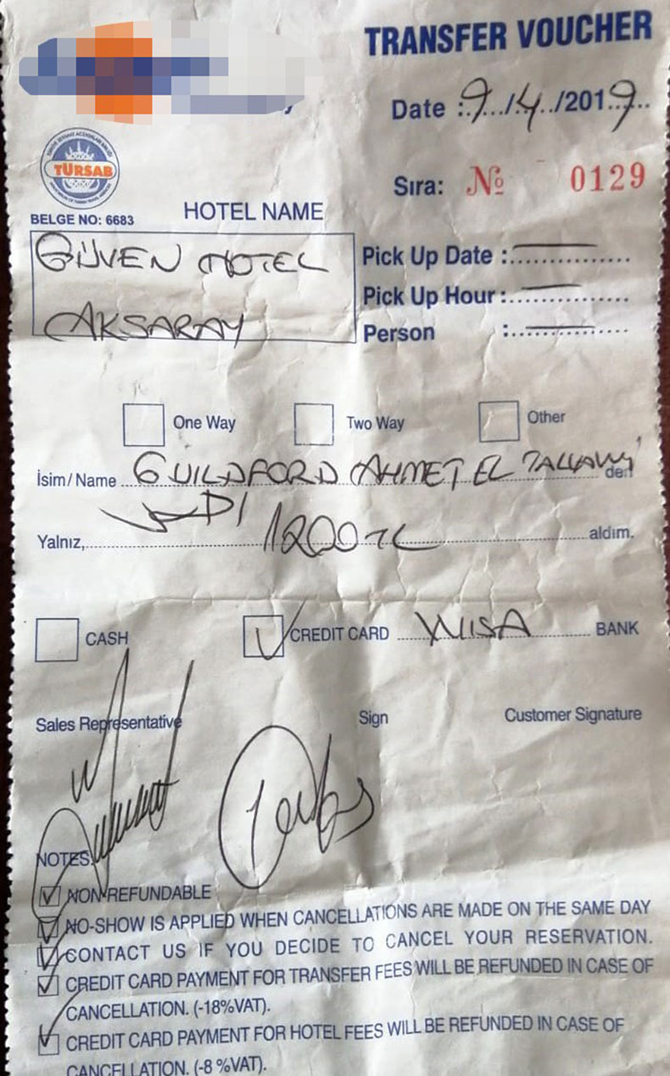 TRANSFER VOUCHER
Date : 9/4/2019
TÜRSAB
Sıra: № 0129
BELGE NO: 6683
HOTEL NAME
GÜVEN HOTEL
AKSARAY
Pick Up Date :
Pick Up Hour :
Person :
One Way
Two Way
Other
İsim / Name GUILDFORD AHMET EL den
Yalnız, 1200 TL aldım.
CASH
CREDIT CARD VİSA BANK
Sales Representative
Sign
Customer Signature
NOTES:
NON-REFUNDABLE
NO-SHOW IS APPLIED WHEN CANCELLATIONS ARE MADE ON THE SAME DAY
CONTACT US IF YOU DECIDE TO CANCEL YOUR RESERVATION.
CREDIT CARD PAYMENT FOR TRANSFER FEES WILL BE REFUNDED IN CASE OF
CANCELLATION. (-18%VAT).
CREDIT CARD PAYMENT FOR HOTEL FEES WILL BE REFUNDED IN CASE OF
CANCELLATION. (-8 %VAT).